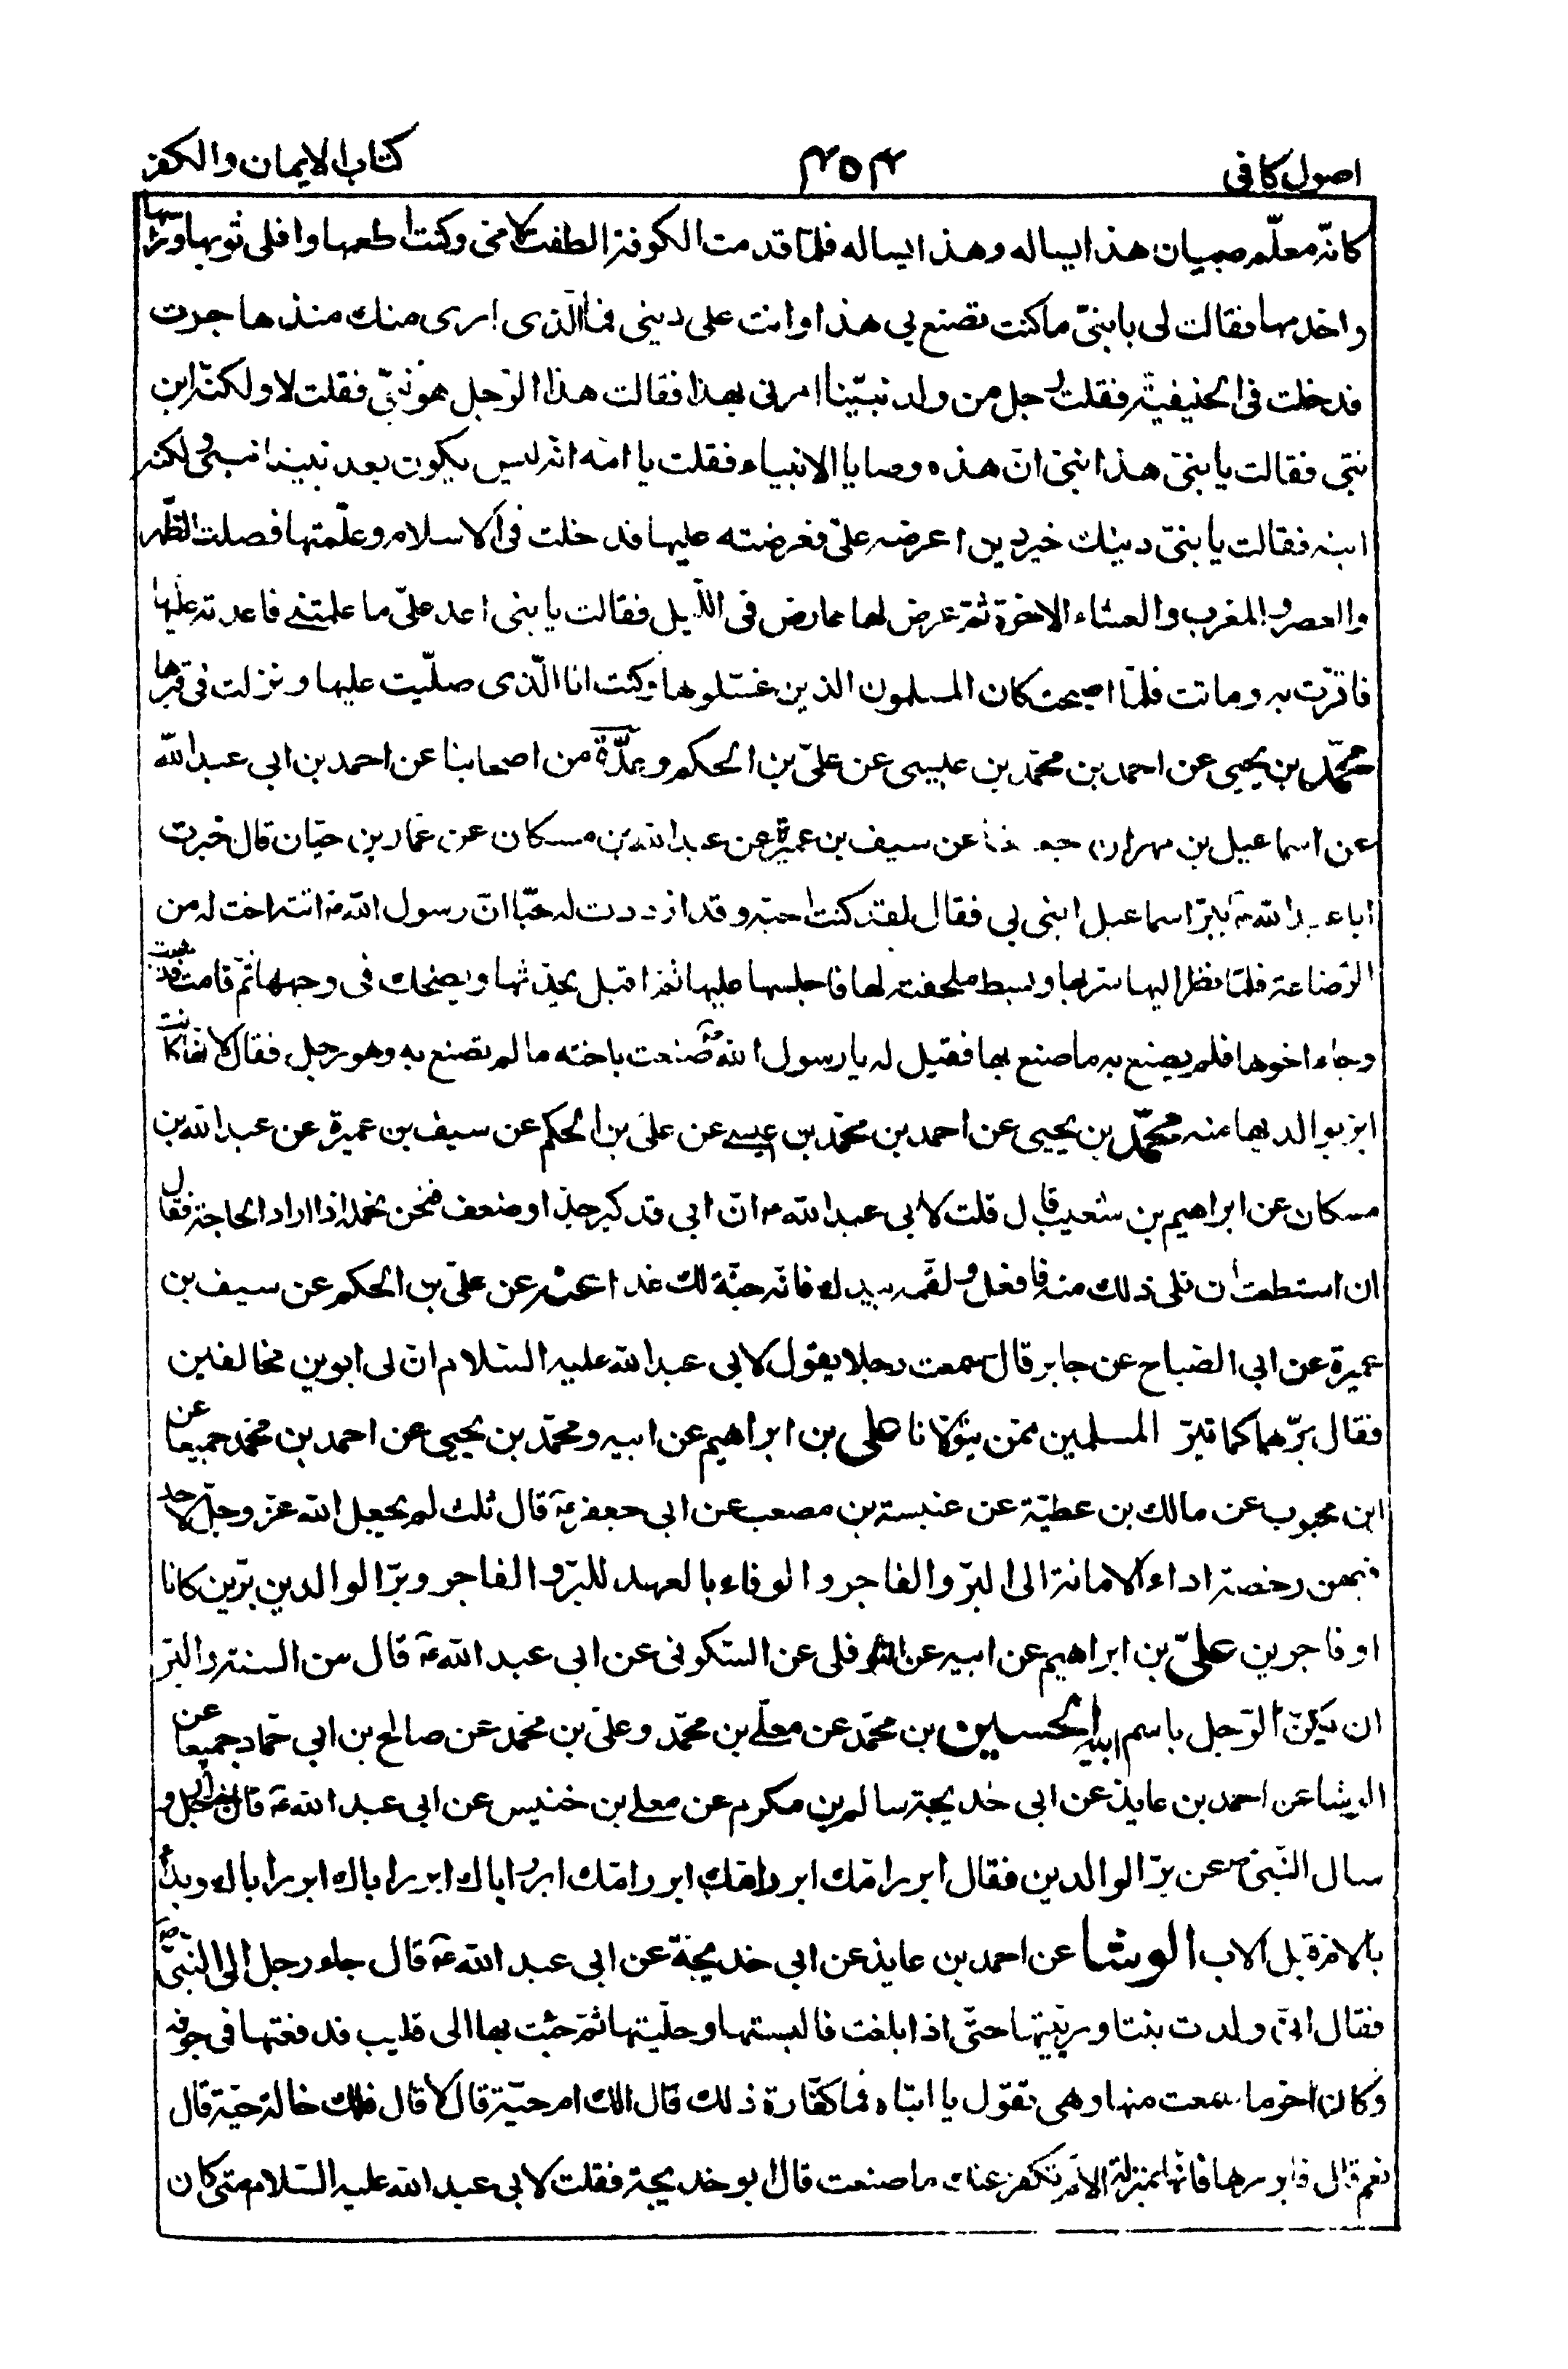 اصول كافى ٤٥٤ كتاب الايمان والكفر
كانّه معلّم صبيان هذا يساله وهذا يساله فلمّا قدمت الكوفة الطفت لامى وكنت اطعمها وافلى ثوبها وراسها
واخدمها فقالت لى يا بنىّ ما كنت تصنع بى هذا وانت على دينى فما الّذى ارى منك منذ هاجرت
فدخلت فى الحنيفية فقلت رجل من ولد نبيّنا امرنى بهذا فقالت هذا الرّجل هو نبىّ فقلت لا ولكنّه ابن
نبىّ فقالت يا بنىّ هذا نبىّ انّ هذه وصايا الانبياء فقلت يا امّه انّه ليس يكون بعد نبينا نبىّ ولكنّه
ابنه فقالت يا بنىّ دينك خير دين اعرضه علىّ فعرضته عليها فدخلت فى الاسلام وعلّمتها فصلت الظّهر
والعصر والمغرب والعشاء الاخرة ثمّ عرض لها عارض فى اللّيل فقالت يا بنى اعد علىّ ما علمتنى فاعدته عليها
فاقرّت به وماتت فلمّا اصبحت كان المسلمون الذين غسّلوها وكنت انا الّذى صلّيت عليها ونزلت فى قبرها
محمّد بن يحيى عن احمد بن محمّد بن عيسى عن علىّ بن الحكم وعدّة من اصحابنا عن احمد بن ابى عبد اللّه
عن اسماعيل بن مهران جميعا عن سيف بن عميرة عن عبد اللّه بن مسكان عن عمّار بن حيّان قال خبرت
ابا عبد اللّه ع ببرّ اسماعيل ابنى بى فقال لقد كنت احبّه وقد ازددت له حبّا انّ رسول اللّه ص اتته اخت له من
الرّضاعة فلمّا نظر اليها سرّ بها وبسط ملحفته لها فاجلسها عليها ثمّ اقبل يحدّثها ويضحك فى وجهها ثمّ قامت فذهبت
وجاء اخوها فلم يصنع به ما صنع بها فقيل له يا رسول اللّه ص صنعت باخته ما لم تصنع به وهو رجل فقال لانّها كانت
ابرّ بوالديها منه محمّد بن يحيى عن احمد بن محمّد بن عيسى عن علىّ بن الحكم عن سيف بن عميرة عن عبد اللّه بن
مسكان عن ابراهيم بن شعيب قال قلت لابى عبد اللّه ع انّ ابى قد كبر جدّا وضعف فنحن نحمله اذا اراد الحاجة فقال
ان استطعت ان تلى ذلك منه فافعل ولقّمه بيدك فانّه جنّة لك غدا عنه عن علىّ بن الحكم عن سيف بن
عميرة عن ابى الصّباح عن جابر قال سمعت رجلا يقول لابى عبد اللّه عليه السّلام انّ لى ابوين مخالفين
فقال برّهما كما تبرّ المسلمين ممّن يتولّانا على بن ابراهيم عن ابيه ومحمّد بن يحيى عن احمد بن محمّد جميعا عن
ابن محبوب عن مالك بن عطيّة عن عنبسة بن مصعب عن ابى جعفر ع قال ثلث لم يجعل اللّه عزّ وجلّ لاحد
فيهن رخصة اداء الامانة الى البرّ والفاجر والوفاء بالعهد للبرّ والفاجر وبرّ الوالدين برّين كانا
او فاجرين علىّ بن ابراهيم عن ابيه عن النوفلى عن السّكونى عن ابى عبد اللّه ع قال من السنة والبرّ
ان يكنّى الرّجل باسم ابيه الحسين بن محمّد عن معلّى بن محمّد وعلىّ بن محمّد عن صالح بن ابى حمّاد جميعا عن
الوشا عن احمد بن عايذ عن ابى خديجة سالم بن مكرم عن معلى بن خنيس عن ابى عبد اللّه ع قال جاء رجل و
سال النّبىّ ص عن برّ الوالدين فقال ابرر امّك ابرر امّك ابرر امّك ابرر اباك ابرر اباك ابرر اباك وبدأ
بالام قبل الاب الوشا عن احمد بن عايذ عن ابى خديجة عن ابى عبد اللّه ع قال جاء رجل الى النّبىّ ص
فقال انّى ولدت بنتا وربّيتها حتّى اذا بلغت فالبستها وحلّيتها ثمّ جئت بها الى قليب فدفعتها فى جوفه
وكان اخر ما سمعت منها وهى تقول يا ابتاه فما كفّارة ذلك قال الك ام حيّة قال لا قال فلك خالة حيّة قال
نعم قال فابررها فانّها بمنزلة الامّ تكفر عنك ما صنعت قال ابو خديجة فقلت لابى عبد اللّه عليه السّلام متى كان